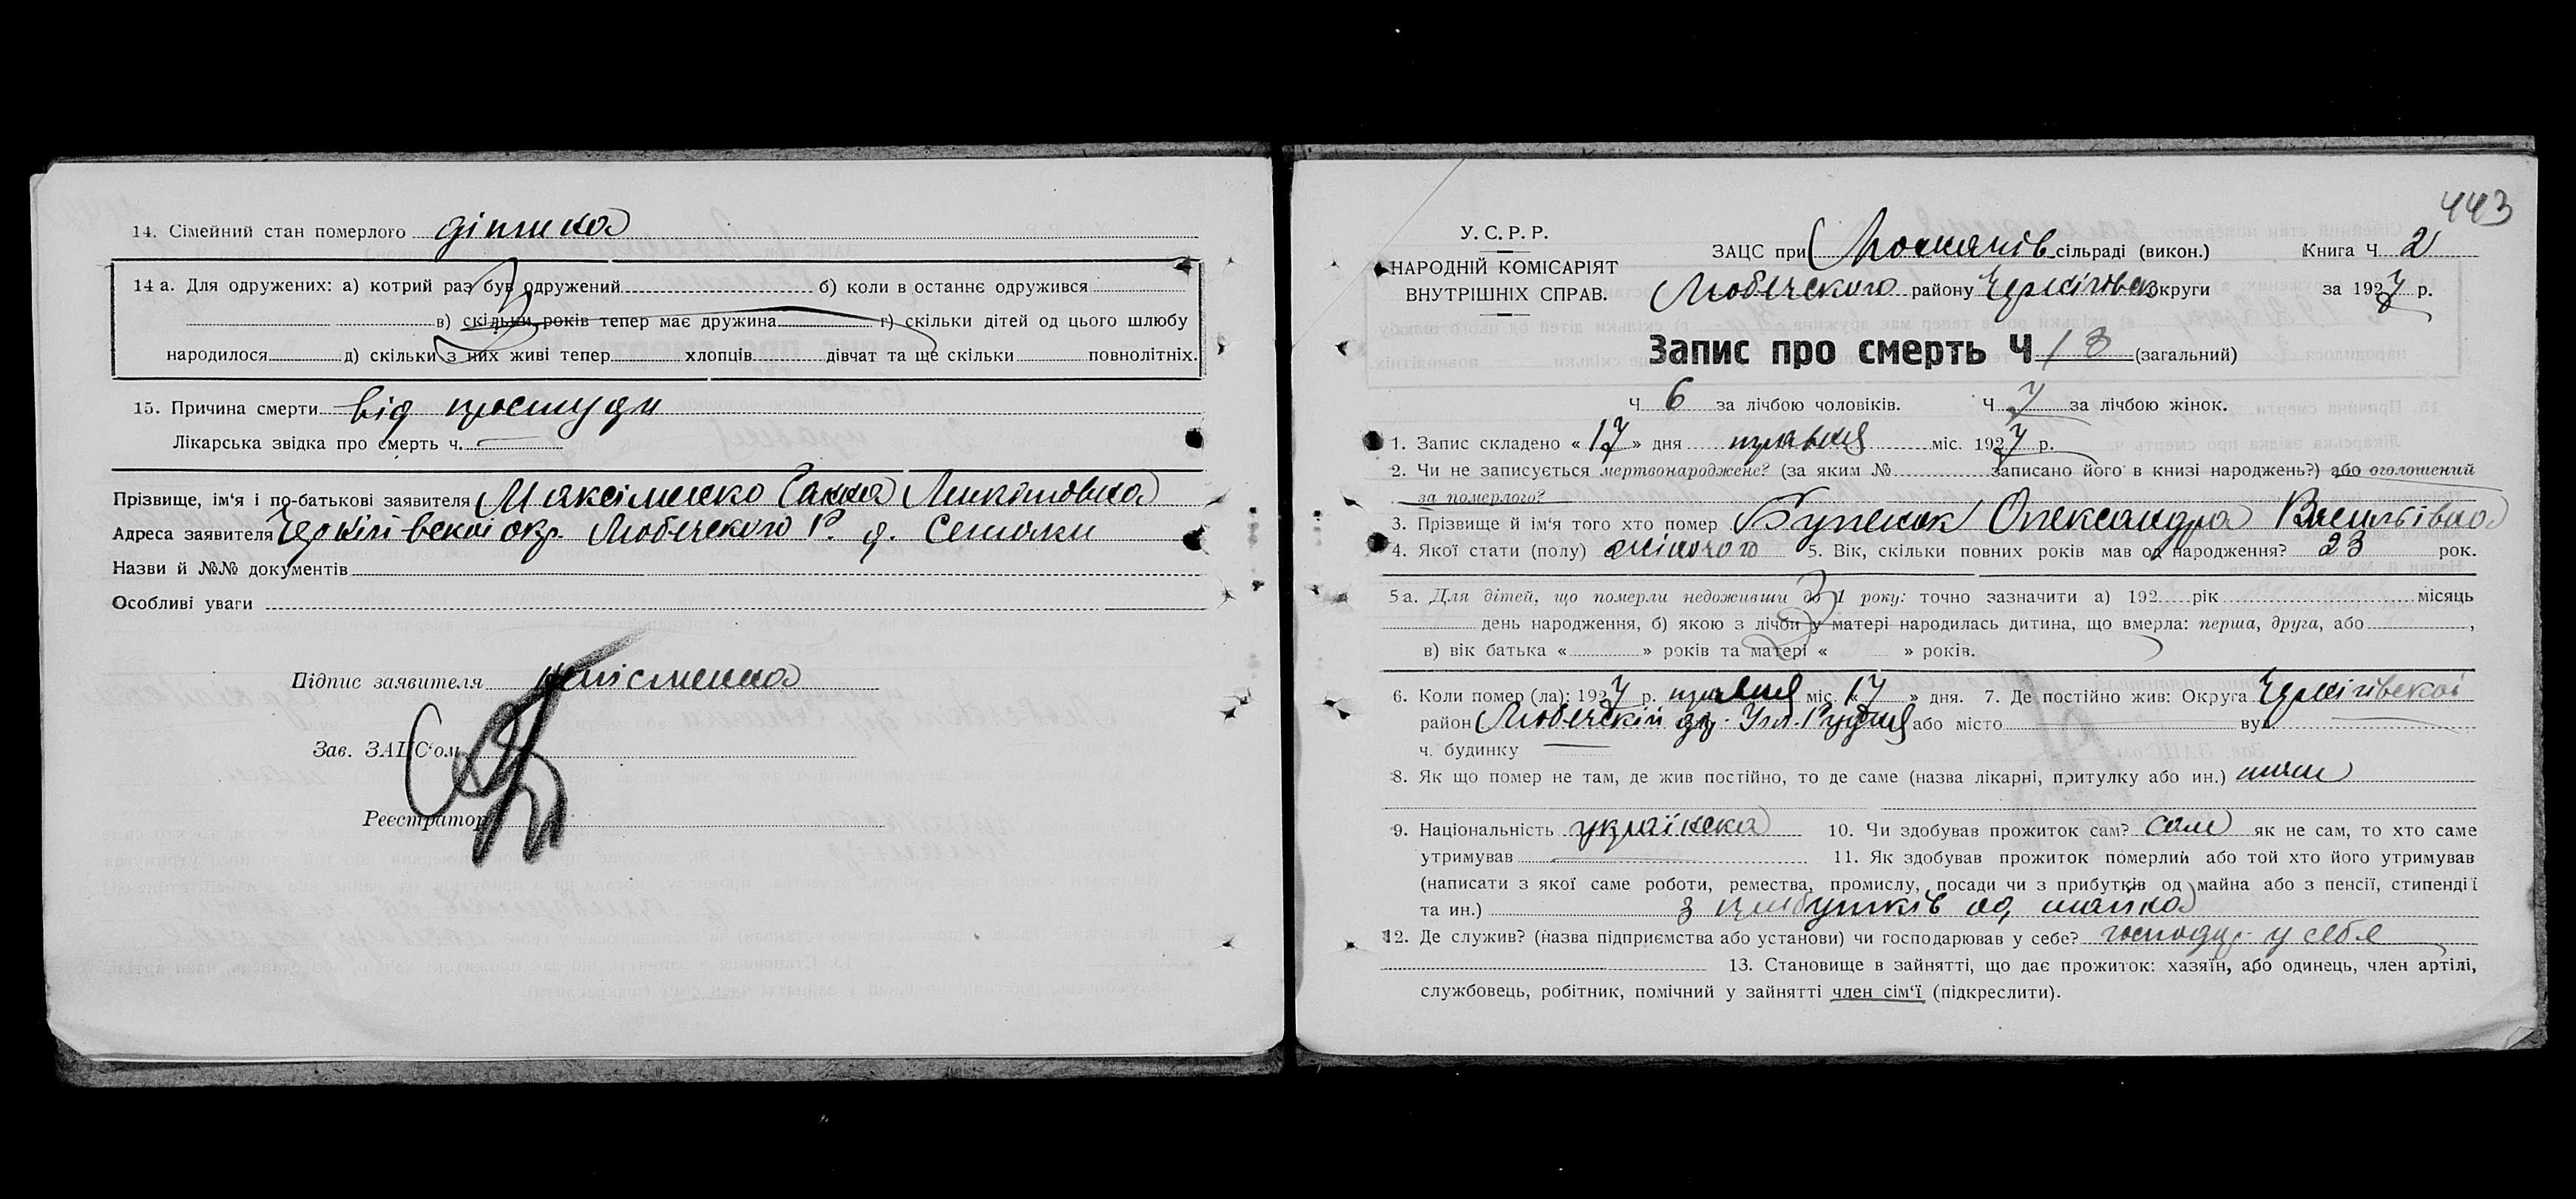 14. Сімейний стан померлого дітина
14 а. Для одружених: а) котрий раз був одружений б) коли в останнє одружився
в) скільки років тепер має дружина г) скільки дітей од цього шлюбу
народилося д) скільки з них живі тепер хлопців дівчат та ще скільки повнолітніх.
15. Причина смерти від простуди
Лікарська звідка про смерть ч.
Прізвище, ім'я і по-батькові заявителя Максіменко Ганна Микітовна
Адреса заявителя Чернігівскоі окр. Любечского Р. д. Семаки
Назви й №№ документів
Особливі уваги
Підпис заявителя неписменна
Зав. ЗАЦС'ом
Реєстратор
443
У. С. Р. Р.
НАРОДНІЙ КОМІСАРІЯТ
ВНУТРІШНІХ СПРАВ.
ЗАЦС при сільраді (викон.) Книга Ч 2
Любечского району Чернігівск округи за 1927 р.
Запис про смерть Ч 13 (загальний)
Ч 6 за лічбою чоловіків. Ч 7 за лічбою жінок.
1. Запис складено « 17 » дня травня міс. 1927 р.
2. Чи не записується мертвонароджене? (за яким № записано його в книзі народжень?) або оголошений
за померлого?
3. Прізвище й ім'я того хто помер Олександра Васильівна
4. Якої стати (полу) жіночого 5. Вік, скільки повних років мав од народження? 23 рок.
5 а. Для дітей, що померли недоживши до 1 року: точно зазначити а) 192 рік місяць
день народження, б) якою з лічби у матері народилась дитина, що вмерла: перша, друга, або ,
в) вік батька « » років та матері « » років.
6. Коли помер (ла): 1927 р. травня міс. « 17 » дня. 7. Де постійно жив: Округа Чернігівскоі
район Любечскій або місто вул.
ч. будинку
8. Як що помер не там, де жив постійно, то де саме (назва лікарні, притулку або ин.) там
9. Національність українска 10. Чи здобував прожиток сам? сам як не сам, то хто саме
утримував 11. Як здобував прожиток померлий або той хто його утримував
(написати з якої саме роботи, ремества, промислу, посади чи з прибутків од майна або з пенсії, стипендії
та ин.) з прибутків од майна
12. Де служив? (назва підприємства або установи) чи господарював у себе? господар. у себе
13. Становище в зайнятті, що дає прожиток: хазяїн, або одинець, член артілі,
службовець, робітник, помічний у зайнятті член сім'ї (підкреслити).